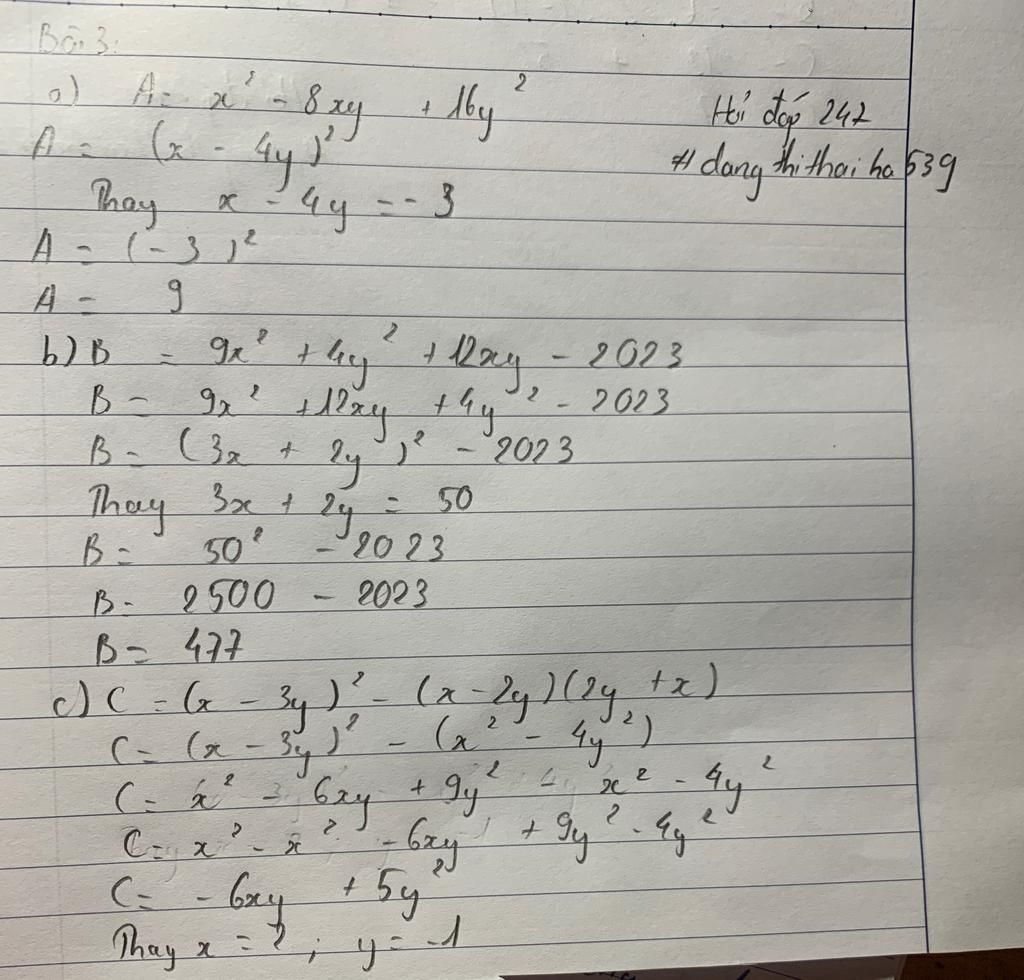 Bài 3:
a) A = x² - 8xy + 16y²
Hỏi đáp 247
A = (x - 4y)²
# dangthithaiha539
Thay x - 4y = -3
A = (-3)²
A = 9
b) B = 9x² + 4y² + 12xy - 2023
B = 9x² + 12xy + 4y² - 2023
B = (3x + 2y)² - 2023
Thay 3x + 2y = 50
B = 50² - 2023
B = 2500 - 2023
B = 477
c) C = (x - 3y)² - (x - 2y)(2y + x)
C = (x - 3y)² - (x² - 4y²)
C = x² - 6xy + 9y² - x² - 4y²
C = x² - x² - 6xy + 9y² - 4y²
C = - 6xy + 5y²
Thay x = 2 ; y = -1